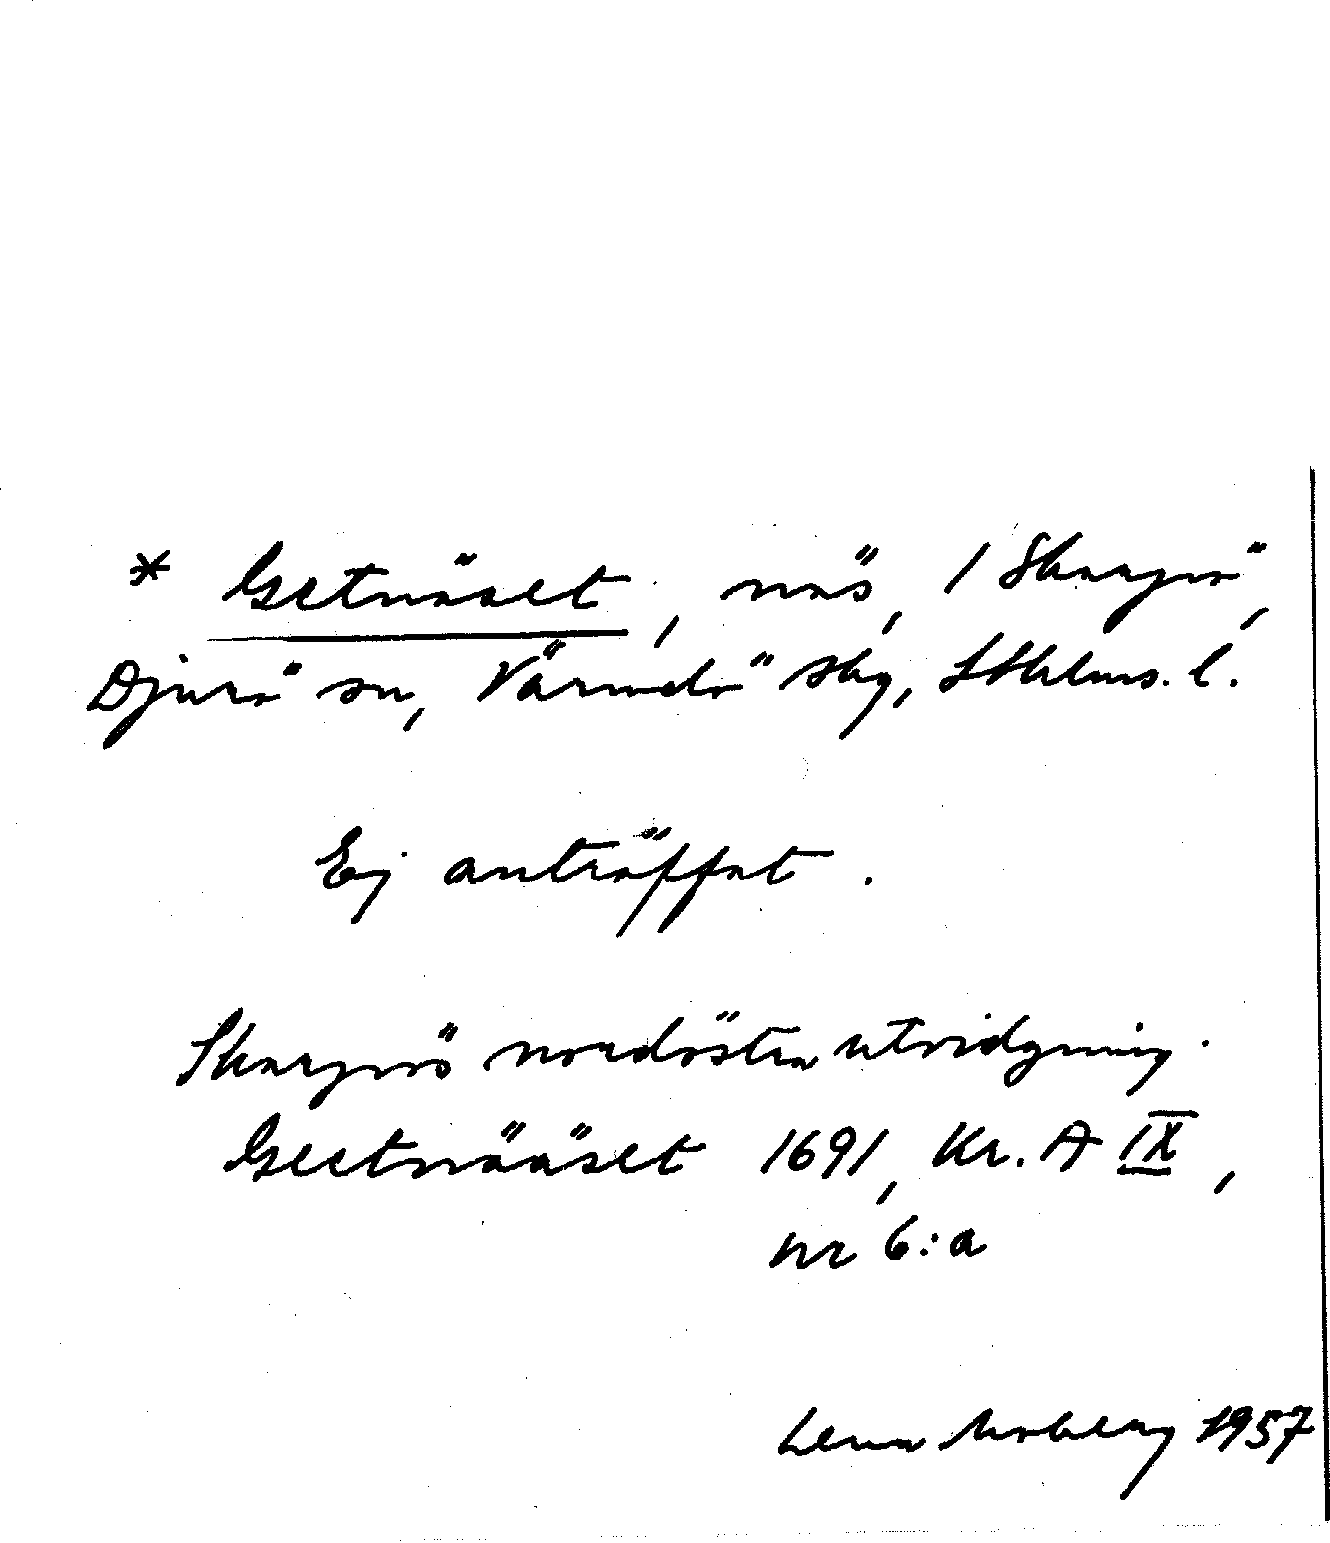 * Getnäset, näs, 1 Skarprö,
Djurö sn, Värmdö skg, Sthlms. l.
Ej anträffat.
Skarprös nordöstra utvidgning.
Geetnääset 1691, Kr. A IX,
nr 6:a
Lena Moberg 1957